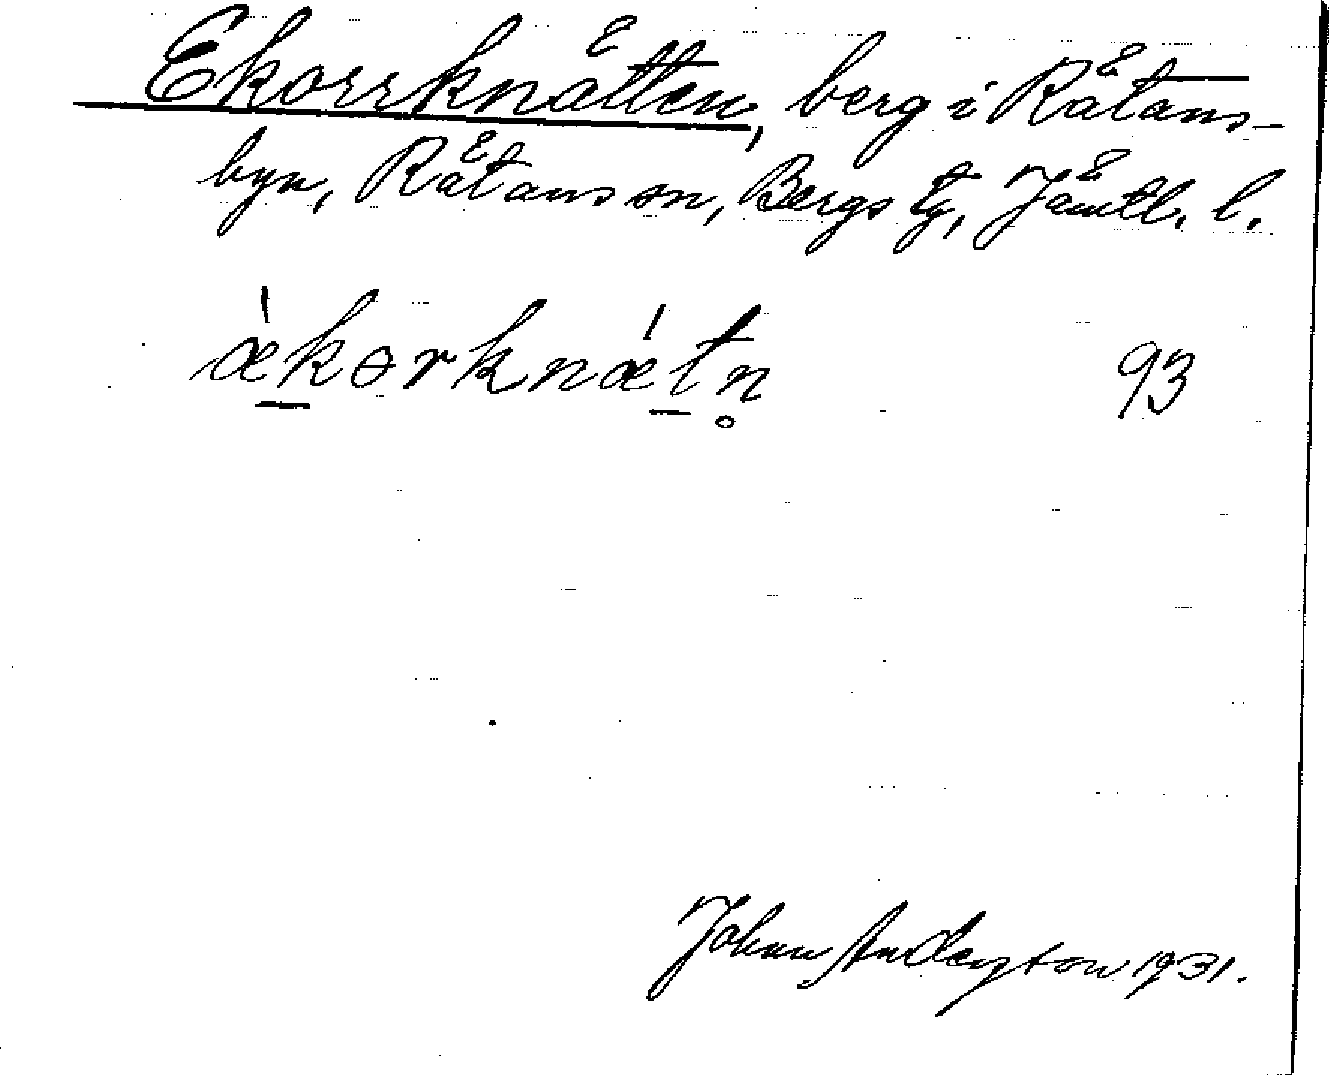 Ekorrknätten, berg i Rätans-
byn, Rätans sn, Bergs tg, Jämtl. l.
ǽk̠ɵrknǽt̠n̥ 93
Johan Anderzton 1931.